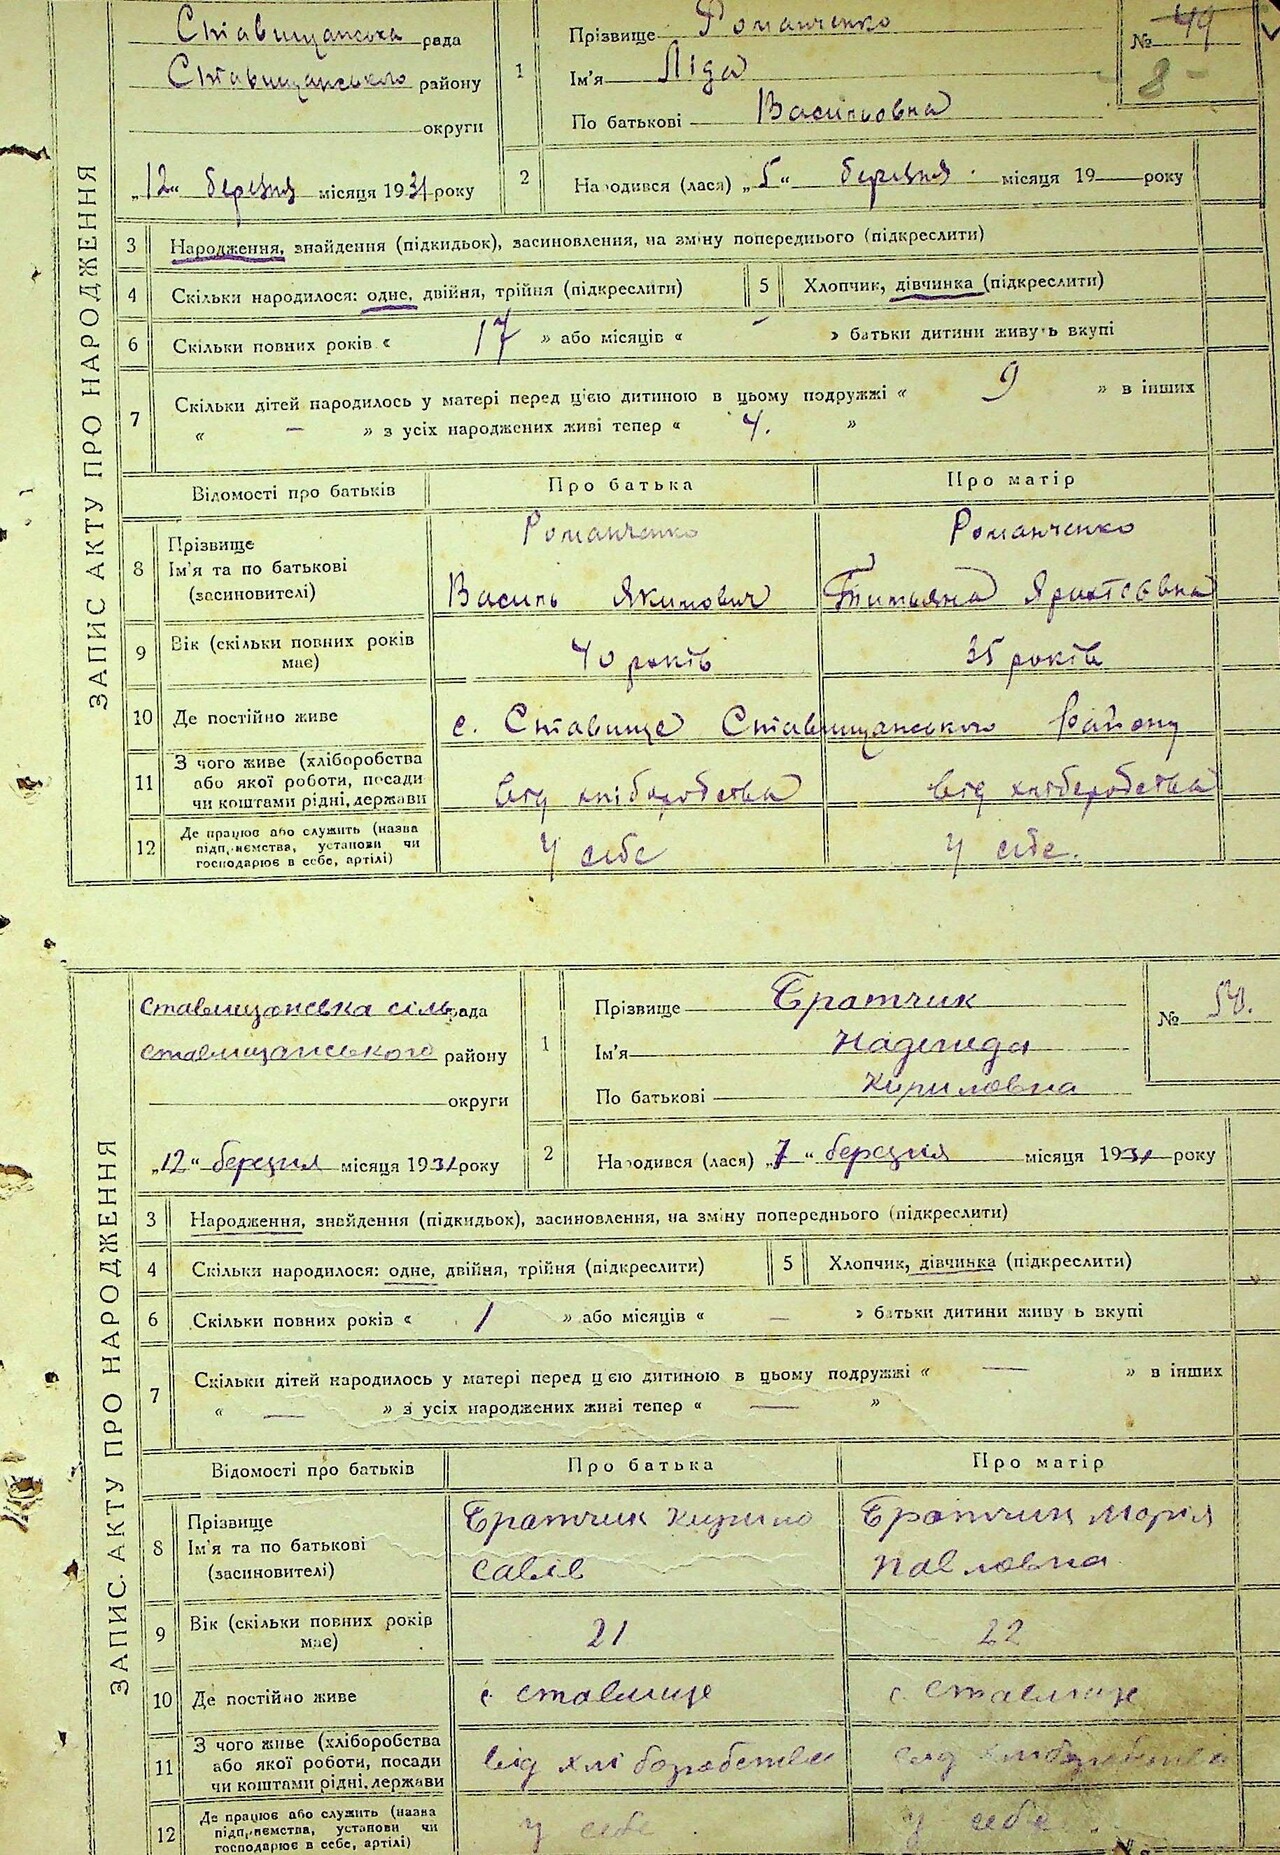 ЗАПИС АКТУ ПРО НАРОДЖЕННЯ
Ставищанська рада
Ставищанського району
округи
„12“ березня місяця 1931 року
1 Прізвище Романченко
Ім'я Ліда
По батькові Васильовна
№ 49
8
2 Народився (лася) „5“ березня місяця 19 року
3 Народження, знайдення (підкидьок), засиновлення, на зміну попереднього (підкреслити)
4 Скільки народилося: одне, двійня, трійня (підкреслити) 5 Хлопчик, дівчинка (підкреслити)
6 Скільки повних років « 17 » або місяців « - » батьки дитини живуть вкупі
7 Скільки дітей народилось у матері перед цією дитиною в цьому подружжі « 9 » в інших
« — » з усіх народжених живі тепер « 4. »
Відомості про батьків Про батька Про матір
8 Прізвище Ім'я та по батькові (засиновителі) Романченко Романченко
Василь Якимович Титьяна
9 Вік (скільки повних років має) 40 років 35 років
10 Де постійно живе с. Ставище Ставищанського району
11 З чого живе (хліборобства або якої роботи, посади чи коштами рідні, держави від хліборобства від хліборобства
12 Де працює або служить (назва підприємства, установи чи господарює в себе, артілі) У себе У себе.
ЗАПИС АКТУ ПРО НАРОДЖЕННЯ
Ставищанська сільрада
Ставищанського району
округи
„12“ березня місяця 1931 року
1 Прізвище Братчик
Ім'я Надежда
По батькові Кириловна
№ 50.
2 Народився (лася) „7“ березня місяця 1931 року
3 Народження, знайдення (підкидьок), засиновлення, на зміну попереднього (підкреслити)
4 Скільки народилося: одне, двійня, трійня (підкреслити) 5 Хлопчик, дівчинка (підкреслити)
6 Скільки повних років « 1 » або місяців « — » батьки дитини живуть вкупі
7 Скільки дітей народилось у матері перед цією дитиною в цьому подружжі « — » в інших
« — » з усіх народжених живі тепер « — »
Відомості про батьків Про батька Про матір
8 Прізвище Ім'я та по батькові (засиновителі) Братчик Кирило Братчик Марія
Савів Павловна
9 Вік (скільки повних років має) 21 22
10 Де постійно живе с. Ставище с. Ставище
11 З чого живе (хліборобства або якої роботи, посади чи коштами рідні, держави від хліборобства від хліборобства
12 Де працює або служить (назва підприємства, установи чи господарює в себе, артілі) у себе у себе.